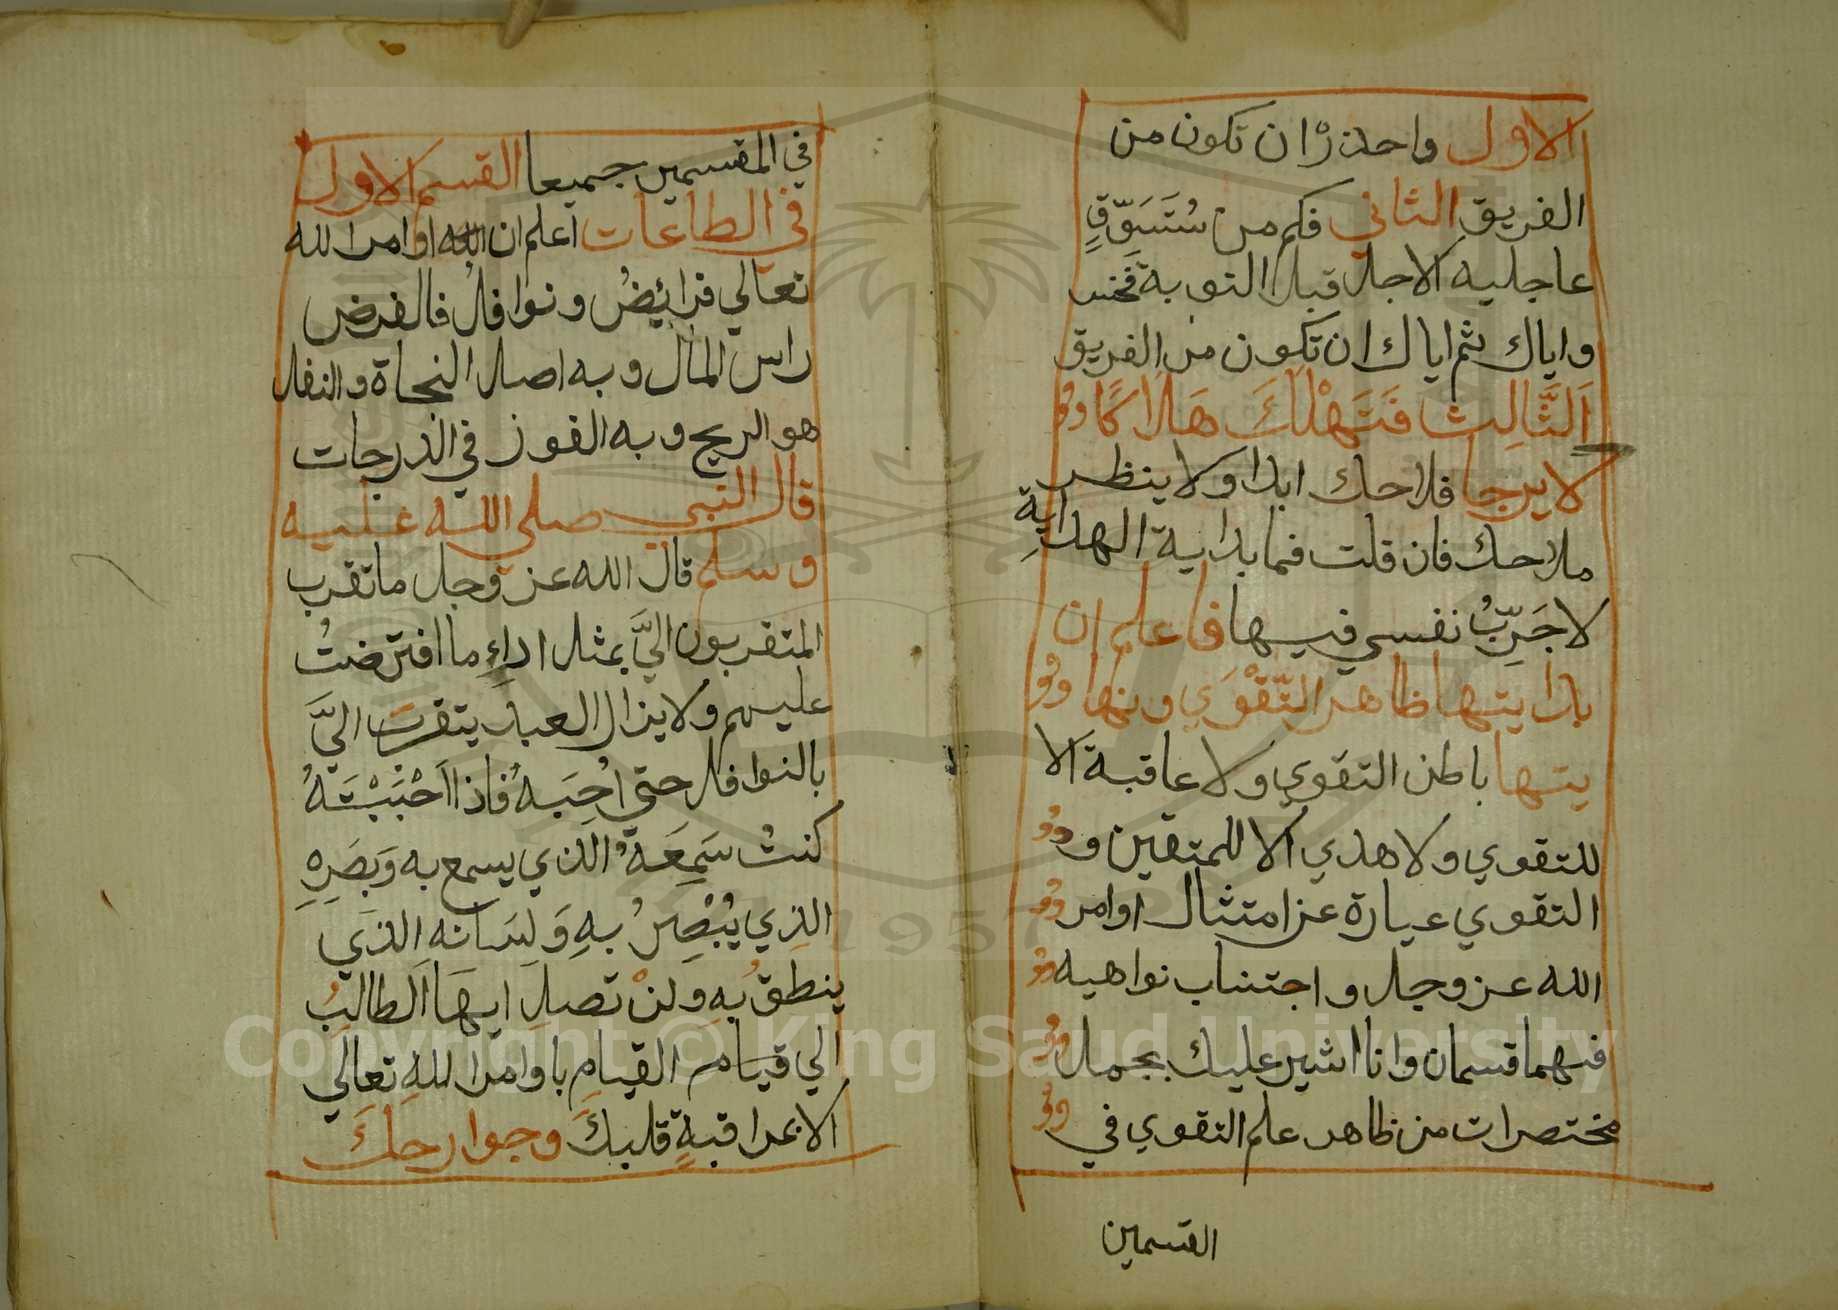 الاول واحذر ان تكون من
الفريق الثاني فكم من سُتَسَوِّقٍ
عاجليه الاجل قبل التوبة فخسر
واياك ثم اياك ان تكون من الفريق
اَلثَّالِث فَتَهْلَكَ هَلَاكًا
لا يرجا فلاحك ابدا ولا ينظر
ملاحك فان قلت فما بداية الهداية
لاجَرِّبُ نفسي فيها فاعلم ان
بدايتها ظاهر التَّقْوَي ونها
يتها باطن التقوي ولا عاقبة الا
للتقوي ولا هدي الا للمتقين و
التقوي عبارة عن امتثال اوامر
الله عز وجل واجتناب نواهيه
فهما قسمان وانا اشير عليك بجمل
مختصرات من ظاهر علم التقوي في
القسمين
في المقسمين جميعا القسم الاول
في الطاعات اعلم ان اوامر الله
تعالي فرائِضُ ونوافلُ فالفرض
راس المال وبه اصل النجاة والنفل
هو الربح وبه الفوز في الدرجات
قال النبي صلي الله عليه
وسلم قال الله عز وجل ما تقرب
المتقربون اليَّ بمثل اداءِ ما افترضتُ
عليهم ولا يزال العبد يتقرب اليَّ
بالنوافل حتي اُحِبَهُ فاذا اَحْبَبْتَهُ
كنتُ سَمِعَهُ الذي يسمع به وَبَصَرِهِ
الذِي يُبْصِرُ بهِ وَلِسَانه الذي
ينطق به ولنْ تصلِ ايهَا الطالبُ
الي قيام القيام باوامر اللهِ تعالي
الا بمراقبةٍ قلبكَ وجوارحكَ
Copyright © King Saud University
1957